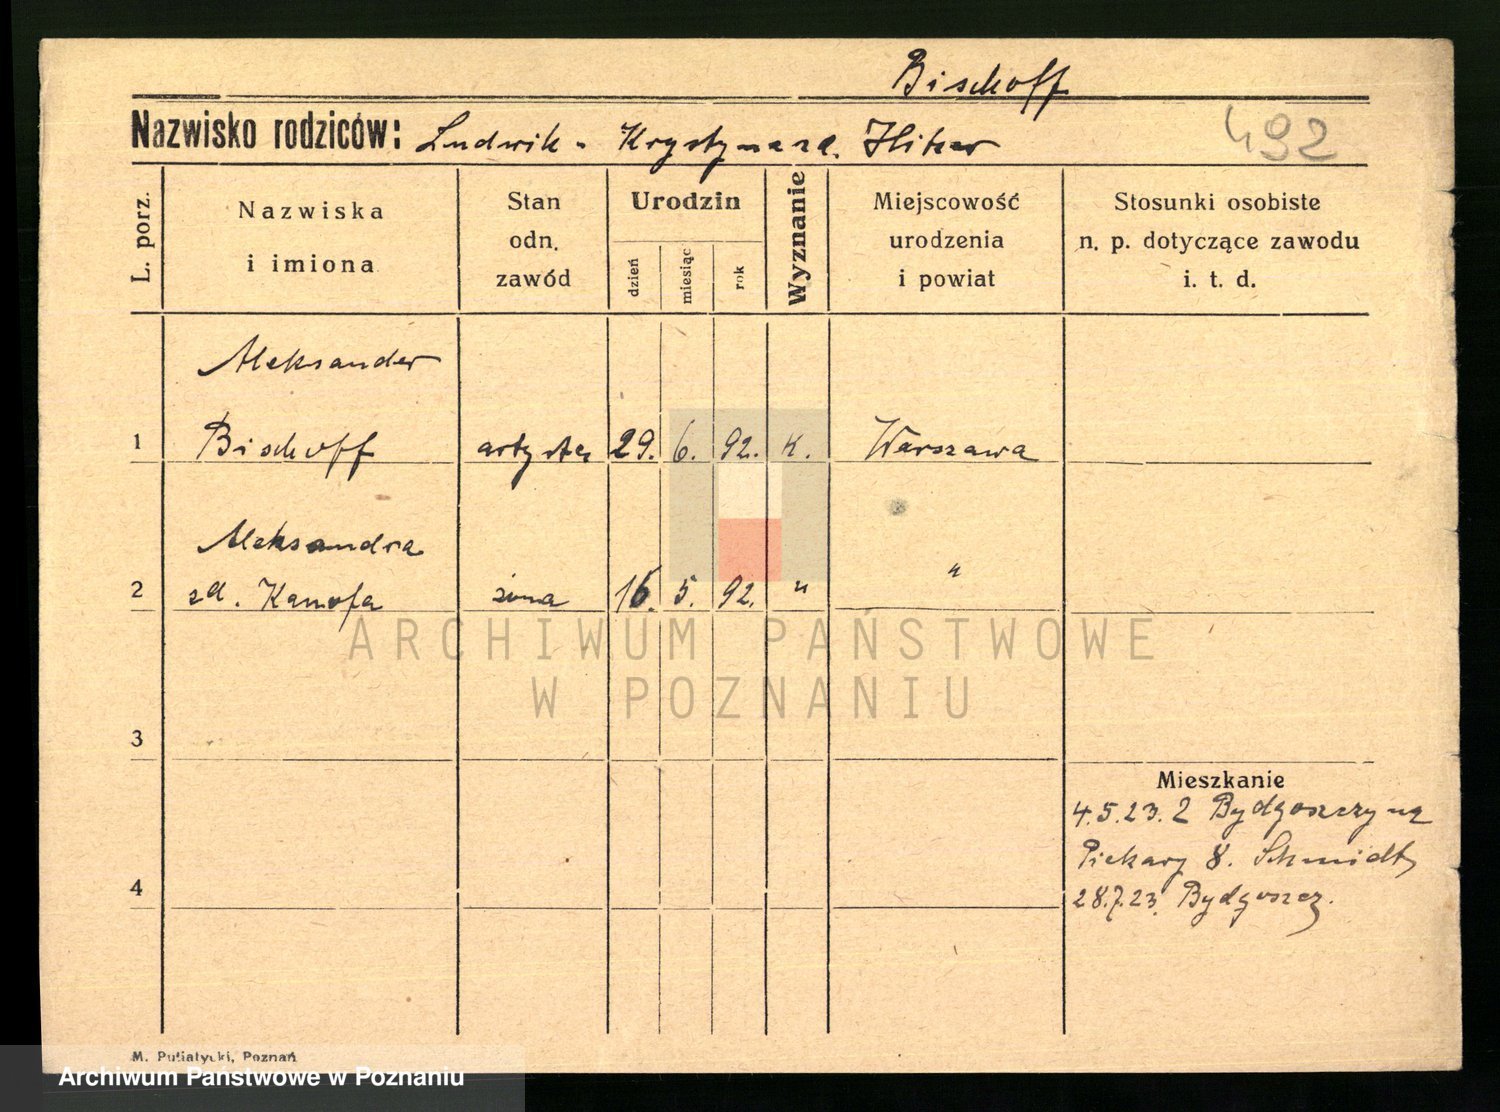 Bischoff
Nazwisko rodziców: Ludwik - Krystyna zd.
492
L. porz.
Nazwiska i imiona
Stan odn. zawód
Urodzin
dzień
miesiąc
rok
Wyznanie
Miejscowość urodzenia i powiat
Stosunki osobiste n. p. dotyczące zawodu i. t. d.
Aleksander
1 Bischoff artysta 29. 6. 92. K. Warszawa
Aleksandra
2 zd. żona 16. 5. 92. " "
ARCHIWUM PAŃSTWOWE
W POZNANIU
3
Mieszkanie
4.5.23. z Bydgoszczy na
Piekary 8. Schmidt
4
28.7.23. Bydgoszcz.
M. Putiatycki, Poznań
Archiwum Państwowe w Poznaniu